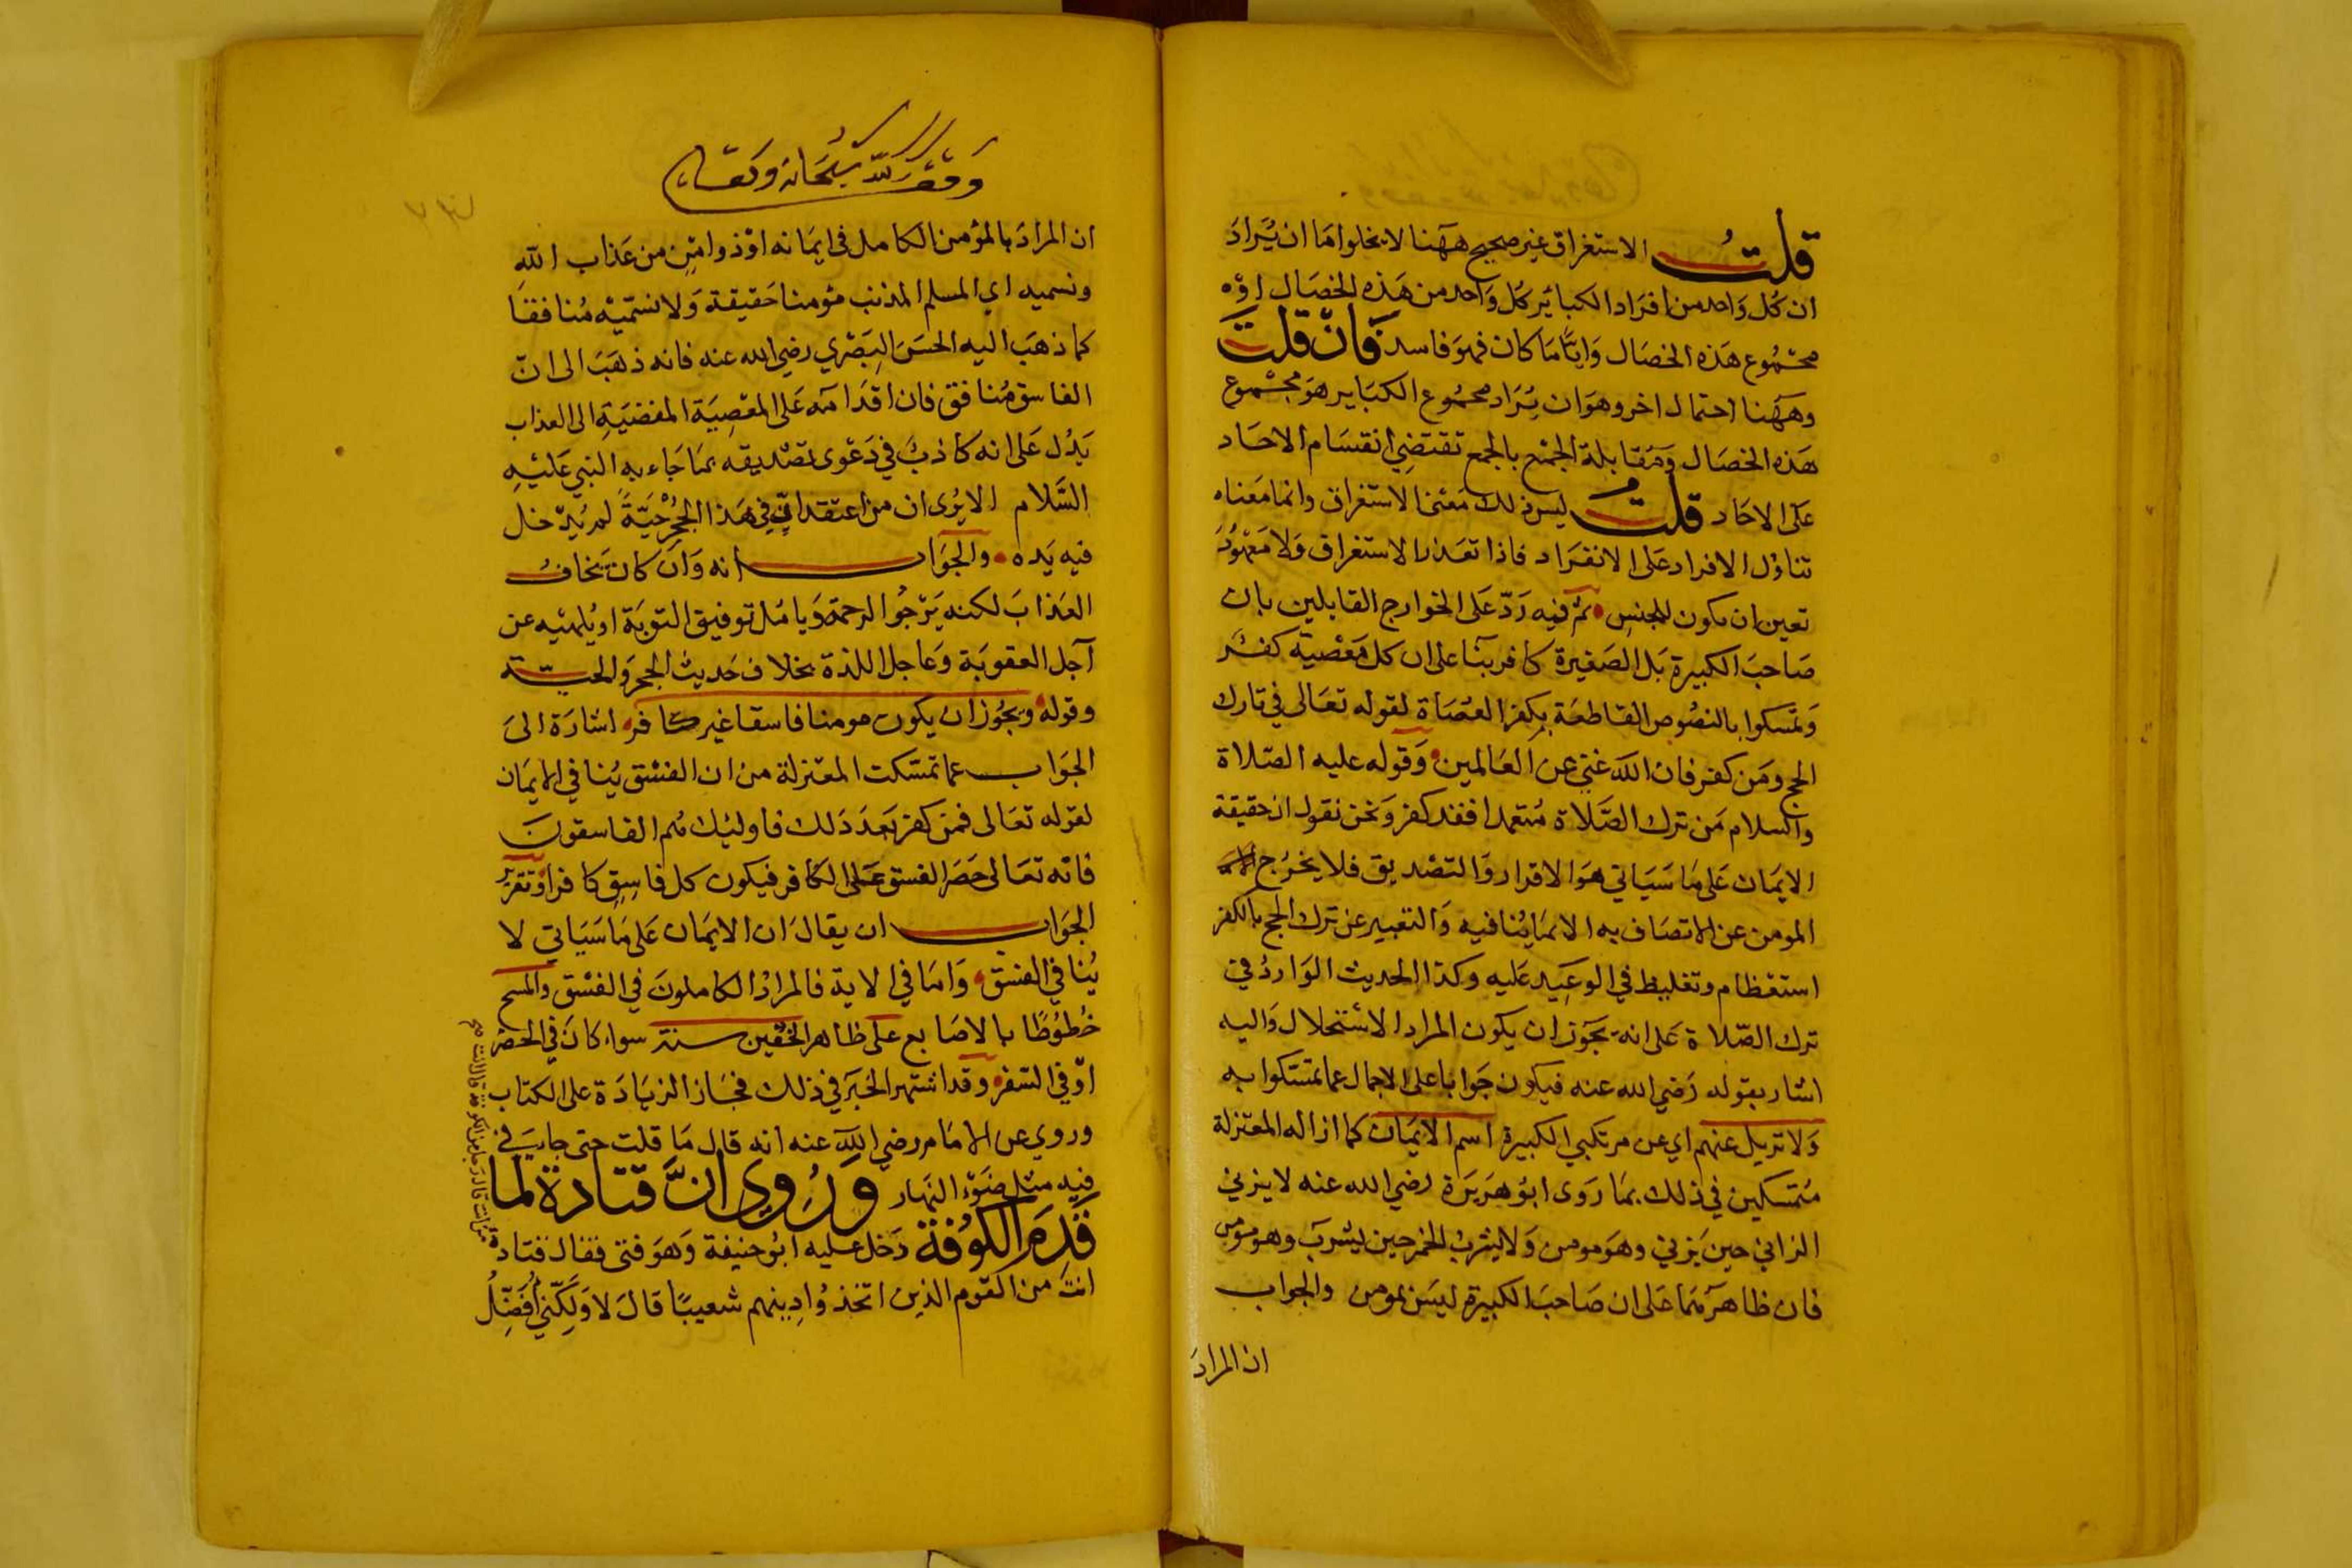 قلت الاستغراق غير صحيح ههنا لا يخلوا مَا ان يُرَادَ
ان كُل وَاحد من افرَاد الكبائر كل وَاحد من هَذه الخصَال اوْ
مجْمُوع هَذه الخصَال وَايًّا مَا كان فهوَ فاسد فَانْ قلتَ
وههَنا احتمال اخر وهوَ ان يُرَاد مجمُوع الكبَاير هوَ مجْموع
هَذه الخصَال وَمُقابلة الجمْع بالجمع تقتضِي انقسَام الاحَاد
عَلى الاحَاد قلتُ ليسَ ذلك مَعْنى الاستغراق وانما مَعناه
تناوُل الافراد عَلى الانفرَاد فاذا تعَذر الاستغراق وَلا مَعْهُودَ
تعين ان يكون للجنسِ ثم فيه رَدّ عَلى الخوارج القايلين بان
صَاحبَ الكبيرة بَل الصَغيرة كافر بنَا على ان كل مَعْصية كفْر
وَتمسكوا بالنصُوص القاطعَة بكفر العصَاة لقوله تعَالى في تارك
الحج ومَن كفر فان الله غني عن العَالمين وَقوله عليه الصَلاة
والسلام مَن ترك الصَّلاة مُتعمدا فقد كفر وَنحن نقول ان حقيقة
الايمَان عَلى مَا سَيَاتي هوَ الاقرار وَالتصْديق فلا يخرُج
المومن عن الاتصَاف به الا بمَا يُنافيه وَالتعبير عن ترك الحج بالكفر
استعْظام وتغليظ في الوعِيد عَليه وكذا الحديث الوَاردُ في
ترك الصّلاة عَلى انه يجوَز ان يكون المراد الاسْتحلال وَاليه
اشار بقوله رَضي الله عنه فيكون جَوابا على الاجمال عما تمسَّكوا به
وَلا نزيل عنهم اي عن مرتكبي الكبيرة اسم الايمَان كما ازاله المعْتزلة
متمسكين في ذلك بمَا رَوى ابوُ هرَيرَة رضي الله عنه لا يزني
الزاني حين يَزني وهوَ مومن وَلا يشرَبْ الخمر حين يشرَب وهو مومن
فان ظاهرَهمَا عَلى ان صَاحبَ الكبيرة ليسَ بمومن والجواب
ان المرادَ
وَقفَ لله سُبْحَانه وَتعَالى
ان المرادَ بالمؤمن الكامل في ايمَانه اوْ ذو امْنٍ من عَذاب اللّهِ
ونسميه اي المسلم المذنب مؤمنا حَقيقة وَلا نسَمّيْه مُنافقا
كما ذهبَ اليه الحسَن البَصْري رضي الله عنه فانه ذهَبَ الى انّ
الفاسق مُنافق فان اقدَامَه عَلى المعْصِيَة المفضيَةِ الى العذاب
يَدُل عَلى انه كَاذبٌ في دَعْوى تصْديقه بمَا جَاء به النبي عَليْهِ
السَّلام الا يُرى ان من اعتقد انّ في هَذا الجُحْرِ حيّةً لم يُدْخل
فيه يَده والجوَاب انه وَان كان يَخافُ
العَذابَ لكنه يَرْجُوا الرحمة وَيامُل توفيق التوبَة او يُلهيْه عن
آجل العقوبَة وَعاجل اللذة بخلاف حَديث الجحر وَالحيّة
وقوله ويجُوز ان يكون مومنا فاسقا غير كافر اشارَة الىَ
الجوَاب عما تمسّكت المعْتزلة من ان الفسْق يُنافي الايمَان
لقوله تعَالى فمن كفر بَعدَ ذلك فاوليك هُم الفاسقونَ
فانه تعَالى حَصَر الفسق عَلى الكافر فيكون كل فاسِقٍ كافرا وَتقرير
الجوَاب ان يقالَ ان الايمَان عَلى مَا سَيَاتي لا
يُنافي الفسْق وَامَا في الاية فالمرادُ الكاملونَ في الفسْق والمسح
خُطوُطًا بالاصَابع عَلى ظاهر الخُفّين سنة سواء كانَ في الحضر
اوْ في السّفر وقد اشتهر الخبَر في ذلك فجَاز الزيَادَة على الكتاب
وروي عن الامَام رضي الله عنه انه قال مَا قلت حتى جاءَني
فيه مثل ضَوْءِ النهار وَرُوي انَّ قتادة لما
قَدِمَ الكوُفة دَخل عليه ابوُ حنيفة وَهوَ فتى فقال قتادة
من اين انت قال رجل من الكوفة قال انت
انتَ من القوم الذين اتخذ وُا دِينهم شعيبًا قالَ لا وَلكِنّي أُفَضِّلُ